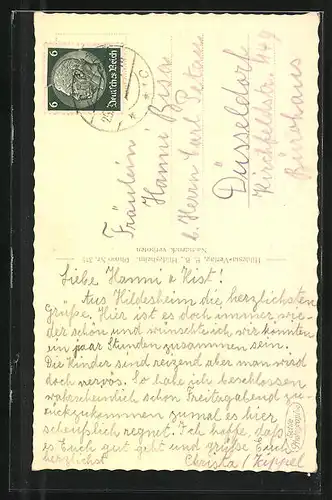 Fräulein
Hanni
b. Herrn Carl Petersen
Düsseldorf
Kirchfeldstr. 149
Bürohaus
6 Deutsches Reich 6
Nachdruck verboten
Liebe Hanni & Kist!
Aus Hildesheim die herzlichsten
Grüße. Hier ist es doch immer wie-
der schön und wünschte ich, wir könnten
ein paar Stunden zusammen sein.
Die Kinder sind reizend aber man wird
doch nervös. So habe ich beschlossen
wahrscheinlich schon Freitagabend zu-
rückzukommen zumal es hier
scheußlich regnet. Ich hoffe, daß
es Euch gut geht und grüße Euch
herzlichst Christa